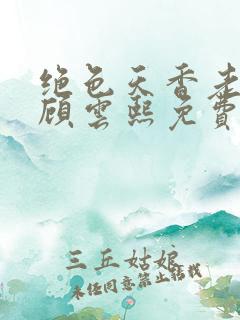 绝色天香老
顾云熙免费
三丘姑娘
未经同意禁止转载